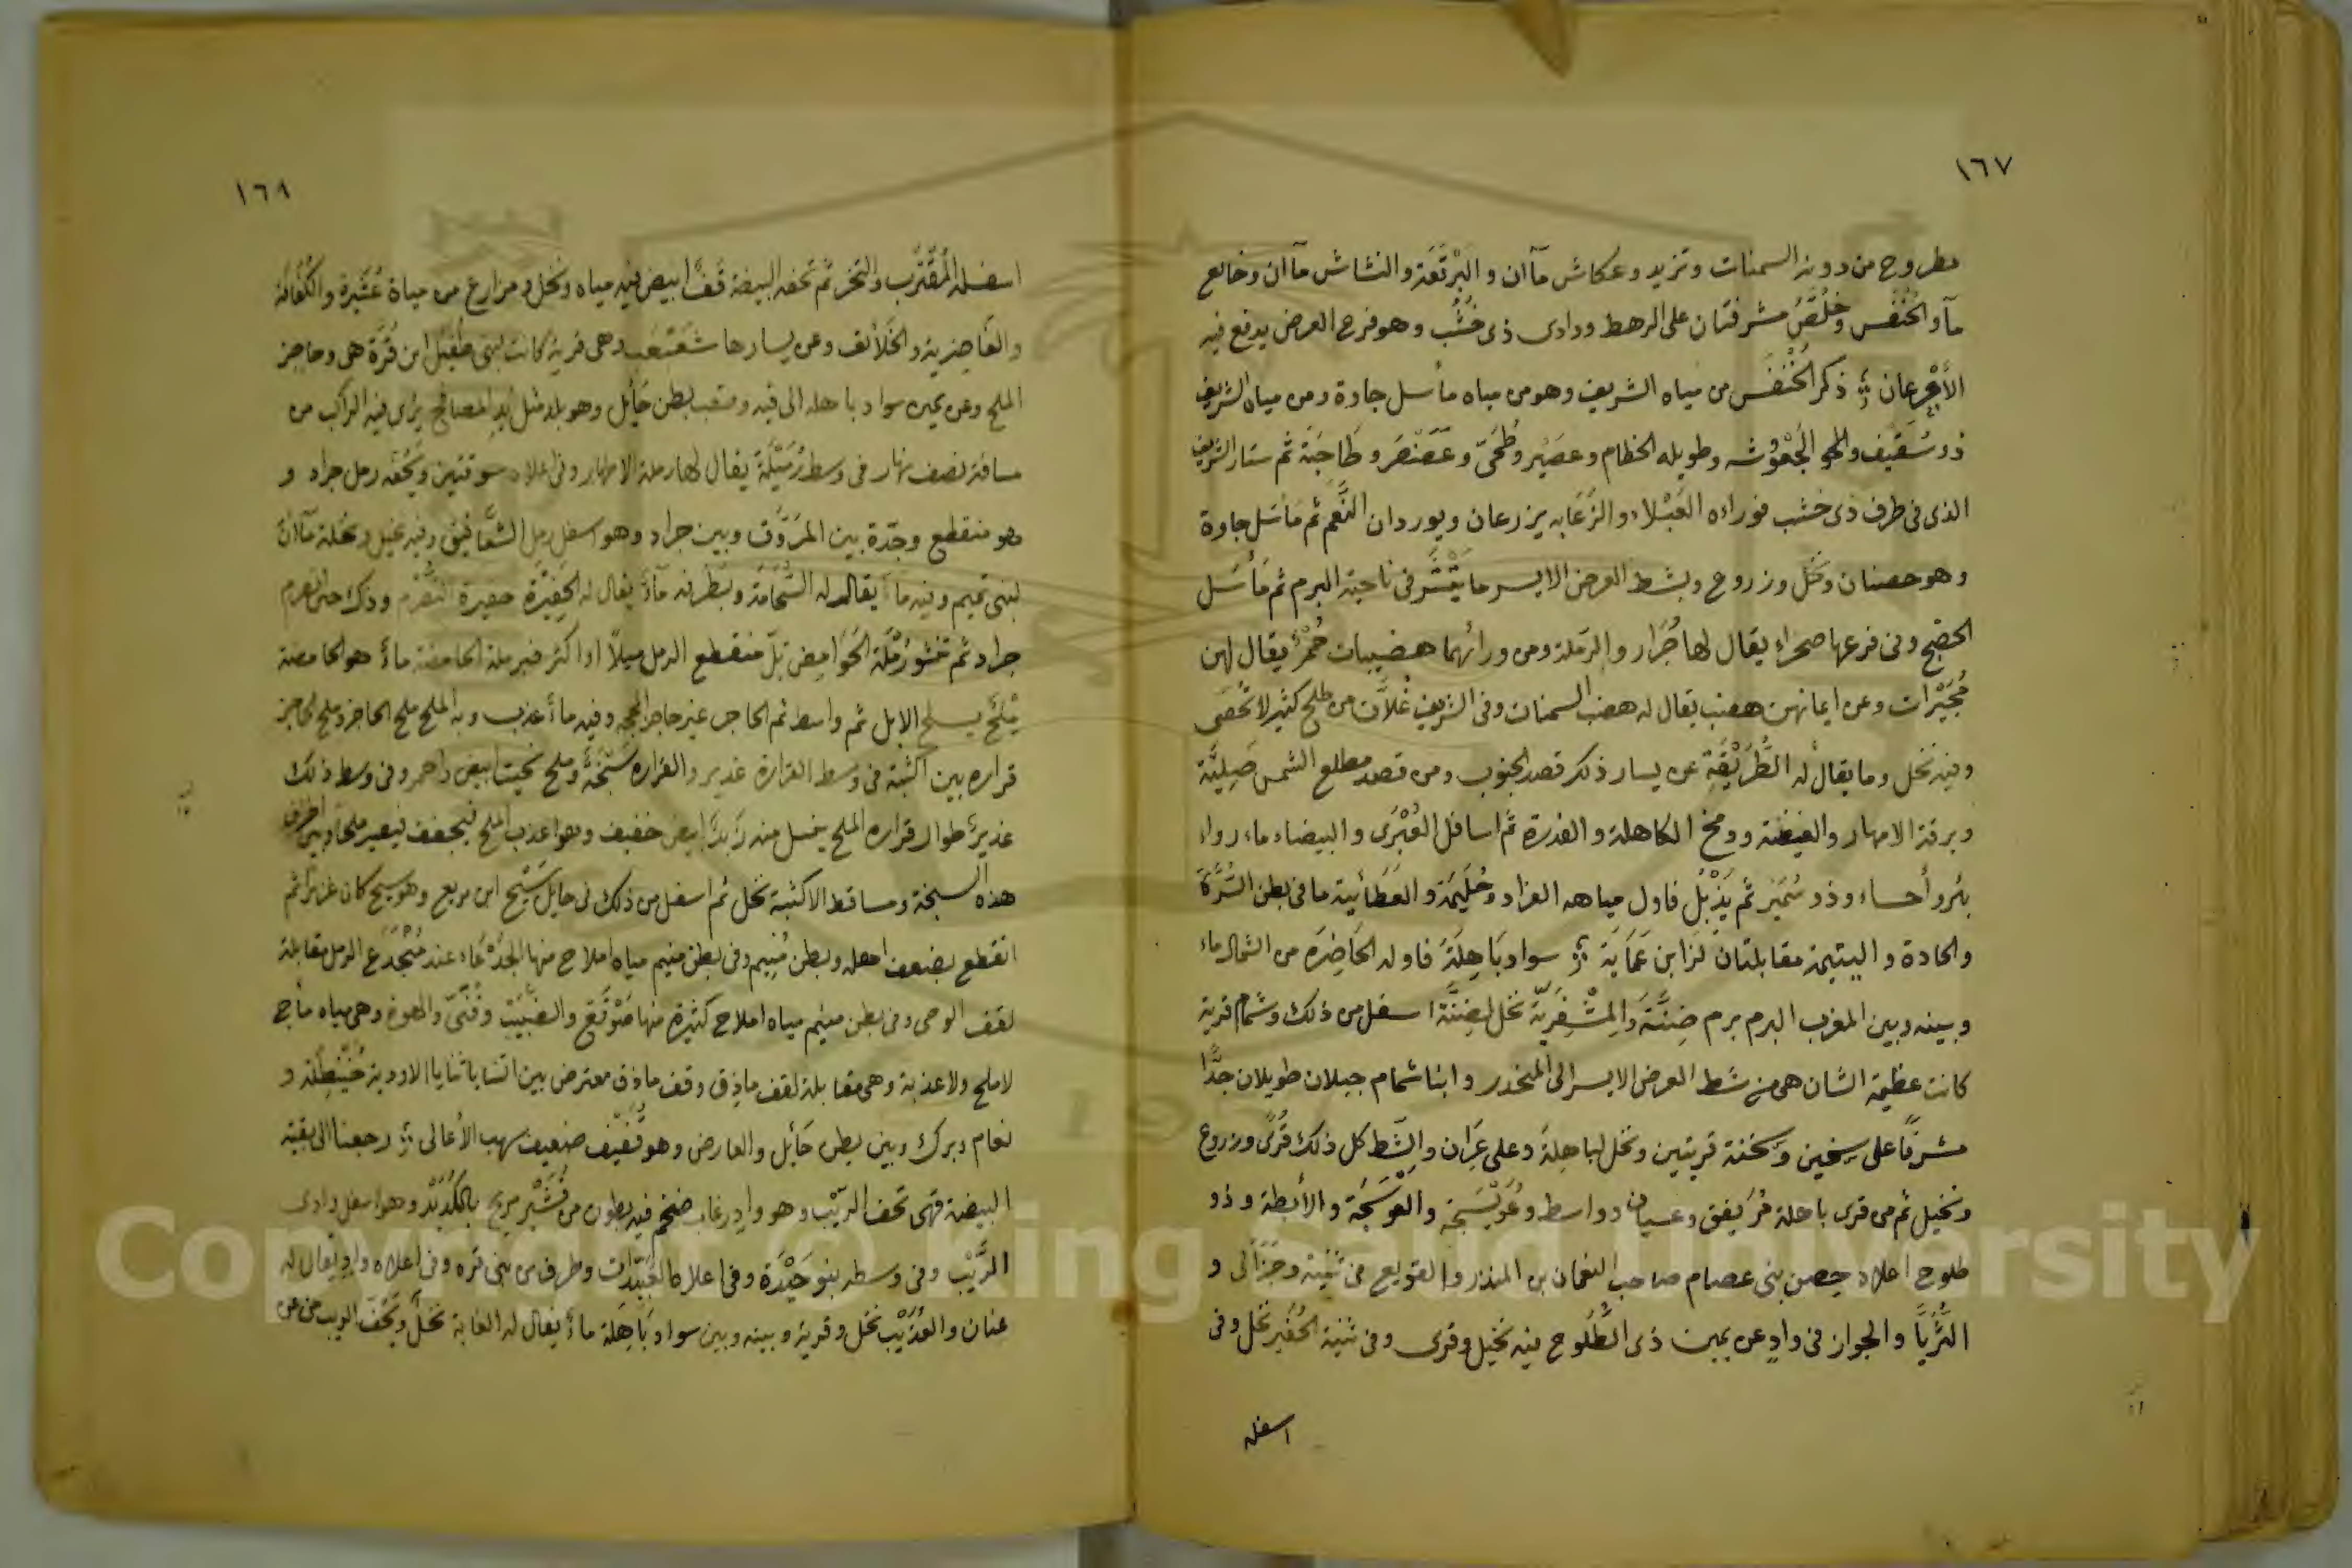 ١٦٧
مطروح من دونه السمنات وتزيد وعكاش مآان والبَرْتَعَة والنشاش مآان وخايع
مآ والخُنْفَس وخُلُصٌ مشرفتان على الرهط ووادى ذى خُشُب وهو فرع العرض يدفع فيه
ذكر الخُنْفَس من مياه الشريف وهو من مياه مأسل جاوة ومن مياه الشريف
ذو سُقَيْف وطويله الخظام وعصَيْر وطُحَىّ وعَصَنْصَر وطَاحَيَة ثم ستار الشريف
الذى فى طرف ذى خشب فوراءه العَبْلاء والزَعَابه يزرعان ويوردان النَّعَم ثم مأسَل جاوة
وهو حصنان ونخل وزروع وبشط العرض الايسر ما فى ناحية البرم ثم مَأسَل
الحضيج وفى فرعها صحراء يقال لها جُرَار والرَملة ومن ورائهما هضيبات حُمْرٌ يقال لهن
مُجَيْرات وعن ايمانهن هضب يقال له هضب السمنات وفى الشريف غُلاَّن من طلح كثير لا تُحْصَى
وفيه نخل وما يقال له الطُرَيْفَة عن يسار ذلك قصد الجنوب ومن قصد مطلع الشمس
وبرقة الامهار والغيضة وومخ الكاهلة والغدرة ثم اسافل العُبْرَى والبيضاء ماء رواء
بئر وأحساء وذو سُمَيْر ثم يَذْبُل فاول مياهه الغراد وحُلَيمَة والعَطَائية ما فى بطن السُّرَّة
والحادة واليتيمة مقابلتان لزابن عَمَاية سواد بَاهِلَة فاوله الحَاضِرَة من الشمال ماء
وبينه وبين المغرب البرم برم ضِنَّة والمِشْفَرِيّة نخل لضِنَّة اسفل من ذلك وشمام قرية
كانت عظيمة الشان هى من شط العرض الايسر الى المنحدر وابنا شمام جبلان طويلان جدًّا
مشرفا على سخين وسخنة قريتين ونخل لباهِلة وعلى عَرَان والشَّط كل ذلك قُرًى وزروع
ونخيل ثم من قرى باهلة مُرَيفق وعسيان وواسط وعُوَيْسَجَة والعَوسَجَة والأبطة وذو
طلوح اعلاه حصن بنى عصام صاحب النعمان بن المنذر والقويع فى ثنية وجَزَالَى و
الثُّرَيَّا والجواز فى وادٍ عن يمين ذى الطُلُوح فيه نخيل وقرى وفى ثنية الحُفَير نخل وفى
اسفله
١٦٨
اسفله المُقْتَرِب والنخر ثم تحفه البيضة قَفًّا ابيض فيه مياه ونخل ومزارع من مياة عُشَيرة والكُفَافة
والقَاضرية والخَلَائف وعن يسارها شَعَبْعَب وهى قرية كانت لبنى طُفَيْل ابن قُرَّة هى وحاجز
الملح وعن يمين سواد باهله الى فيه ومنقب بطن حَائِل وهو بلد مثل يد المصافح يرى فيه الراكب من
مسافة نصف نهار فى وسط رُمَيْلَة يقال لها رملة الامهار وفى اعلاه سوقتين ويحُفّه رمل جراد و
هو منقطع وجدّة بين المَرُّوت وبين جراد وهو اسفل رمل الشعَافيق وفيه غيل ونخلة مآان
لبنى تميم وفيه ماءٌ يقال له السُّحَامَة وبطَرفه ماءٌ يقال له الحُفِيْرَة
جراد ثم تخشو رَمْلَة الحَوَامِض تِلّ منقطع الرمل ميلاً او اكثر فبرملة الحامضة ماءٌ هو الحامضة
مِلْحٌ يسلح الابل ثم واسط ثم الحاجر غير حاجر وفيه ماء عذب وبه الملح ملح الحاجز وملح الحاجز
قراره بين اكثبة فى وسط القرارة غدير والقراره سَبَخَةٌ وملح نحيت ابيض واحمر وفى وسط ذلك
غديرٌ طوال قراره الملح يغسل منه زَبَدًا ابيض خفيف وهو اعذب الملح فيجفف فيصير ملحًا وبين اطراف
هذه السبخة ومساقط الاكثبة نخل ثم اسفل من ذلك فى حايل سَيْح ابن مربع وهو سيح كان غزيرا ثم
انقطع بضعف اهله وبطن مُنِيم وفى بطن منيم مياه املاح منها الجَدْعَاء عند مُنْجَدَع الرمل مقابلة
لقف الوحى وفى بطن منيم مياه املاح كثيرة منها صَوْقَع والضبَيْب وقُنَىّ والهوة وهى مياه مأج
لا ملح ولا عذبة وهى مقابلة لقف ماذق وقف ماذق معترض بين ثنايا الاودية و
نعام وبرك وبين بطن حَائِل والعارض وهو قُفَيْف ضعيف سهب الأعالى رجعنا الى بقية
البيضة فهى تحف الرَيْب وهو وادٍ رغاب ضخم فيه بطون من قُشَيْر وهو اسفل وادى
الرَّيْب وفى وسطه بنو حَيْدَة وفى اعلاه العُبَيْدَات وطرف من بنى قره وفى اعلاه وادٍ يقال له
عنان والعُذَيْب نخل وقرية وبينه وبين سواد بَاهِلة ماءٌ يقال له الغابة نخل وتُحَفّ الريب من عن